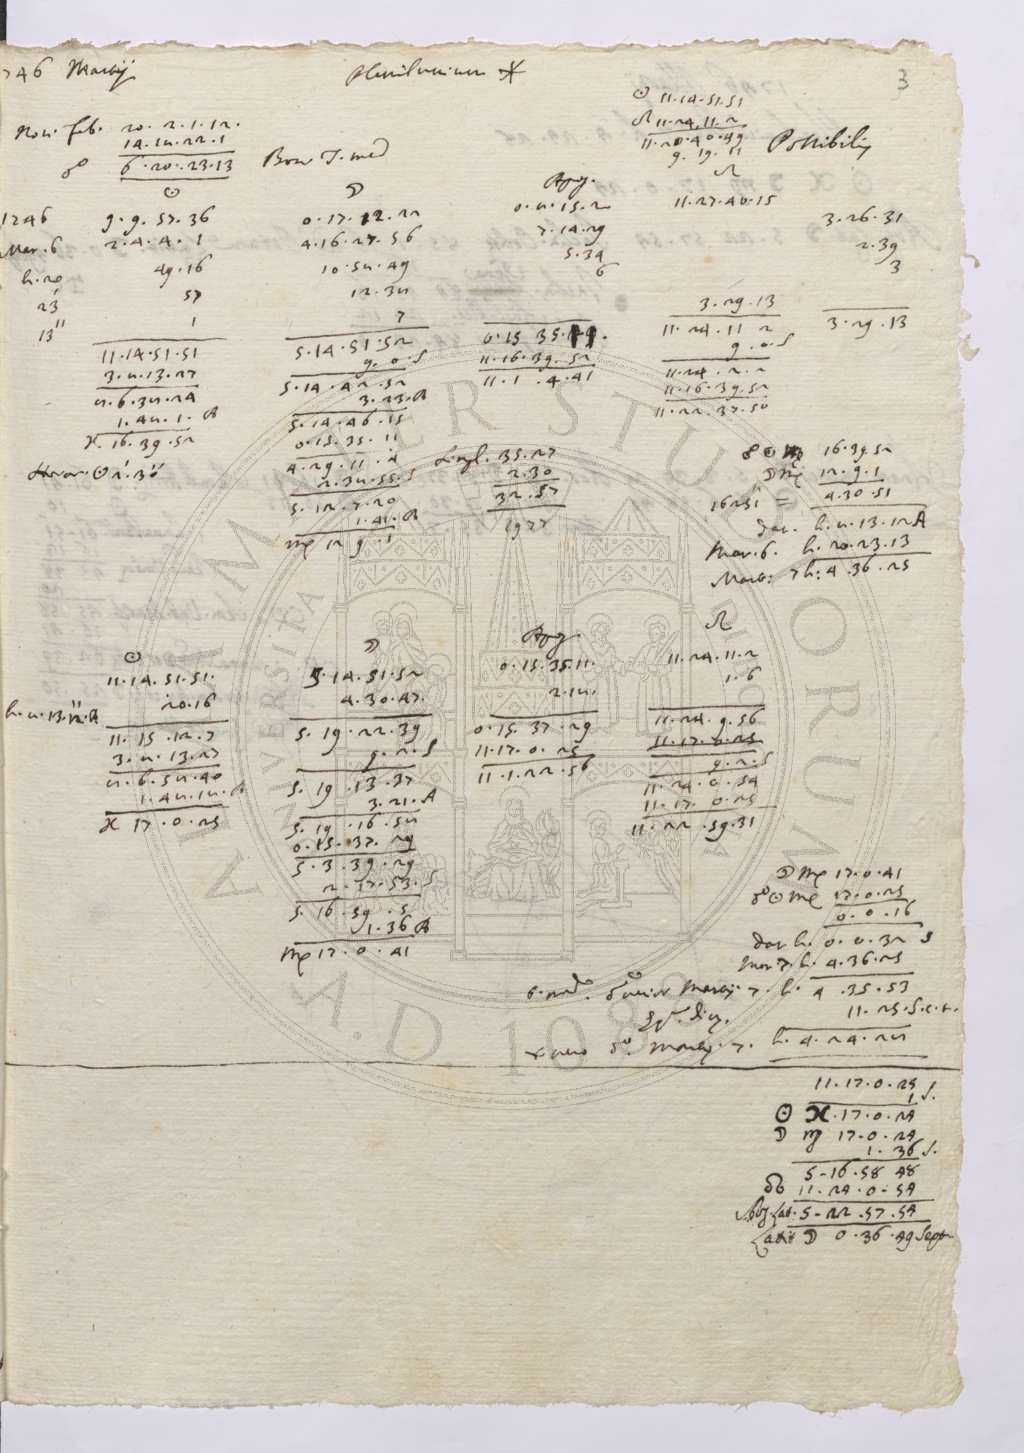 1746 Martij
Plenilunium
3
☉ 11.14.51.51
☊ 11.24.11.2
11.20.40.49
9.19.11
Possibilis
Nou. feb. 20.2.1.12.
14.21.22.1
☍ 6.20.23.13
Bon. T. med
☉
☽
Apog.
☊
1746 9.9.57.36
0.17.12.22
0.2.15.2
11.27.40.15
3.26.31
Mar. 6 2.4.4.1
4.16.27.56
7.14.29
2.39
h. 20 49.16
10.52.49
5.34
3
23' 57
12.32
6
13'' 1
7
3.29.13
3.29.13
11.14.51.51
5.14.51.52
0.15.35.11.
11.24.11.2
3.21.13.27
9.0.S
11.16.39.52
9.0.S
2.6.32.24
5.14.42.52
11.1.4.41
11.24.2.2
1.42.1.A
3.23.A
11.16.39.52
♓.16.39.52
5.14.46.15
11.22.37.50
0.15.35.11
4.29.11.4
2.32.55.S
5.12.7.20
1.41.A
♍ 12.9.1
Horar. ☉ 2'.30''
35.27
2.30
32.57
1977
☍ ☉ ♍ 16.39.52
☽ ♍ 12.9.1
16251 = 4.30.51
dat. h. 2.13.12 A
Mar. 6. h. 20.23.13
Mart: 7 h: 4.36.25
☉
☽
Apog.
☊
11.14.51.51.
5.14.51.52
0.15.35.11.
11.24.11.2
20.16
4.30.47.
2.12.
1.6
11.15.12.7
5.19.22.39
0.15.37.29
11.24.9.56
3.21.13.27
9.2.S
11.17.0.25
11.17.0.25
2.6.52.40
5.19.13.37
11.1.22.56
9.2.S
1.42.12.A
3.21.A
11.24.0.54
♓ 17.0.25
5.19.16.52
11.17.0.25
0.15.37.29
11.22.59.31
5.3.39.29
2.17.53.S
5.16.59.5
1.36 A
♍ 17.0.41
☽ ♍ 17.0.41
☍ ☉ ♍ 17.0.25
0.0.16
dat h. 0.0.32 S
Mar 7. h. 4.36.25
Martij 7. h. 4.35.53
11.25.S.
☍ Martij 7. h. 4.24.22
11.17.0.25
1 S.
☉ ♓.17.0.24
☽ ♍ 17.0.24
1.36 S.
5.16.58.48
11.24.0.54
Arg. Lat. 5.22.57.54
Latit ☽ 0.36.49 Septr
ALMA MATER STUDIORUM
UNIVERSITÀ
A.D. 1088